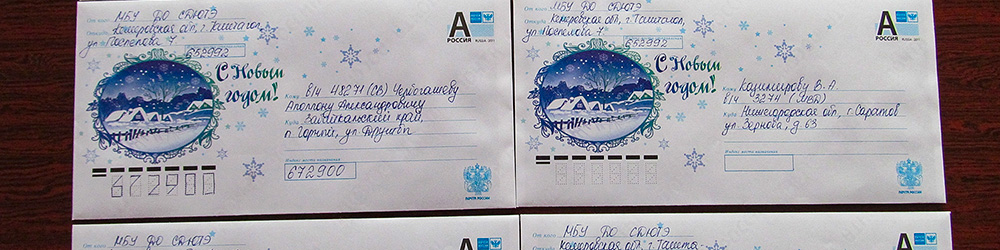 От кого МБУ ДО СДЮТЭ
Откуда Кемеровская обл, г. Таштагол,
ул. Поспелова 7
652992
А
РОССИЯ
С Новым
годом!
Кому в/ч 48271 (СВ) Челбогашеву
Аполлону Александровичу
Куда Забайкальский край,
п. Горный, ул. Фурунова
Индекс места назначения
672900
672900
ПОЧТА РОССИИ
От кого МБУ ДО СДЮТЭ
Откуда Кемеровская обл, г. Таштагол,
ул. Поспелова 7
652992
А
РОССИЯ
С Новым
годом!
Кому Кашмирову В. А.
в/ч 3274
Куда Нижегородская обл, г. Саратов
ул. Зернова, д. 63
Индекс места назначения
ПОЧТА РОССИИ
От кого МБУ ДО СДЮТЭ
А
От кого МБУ ДО СДЮТЭ
Кемеровская обл, г. Ташта-
А